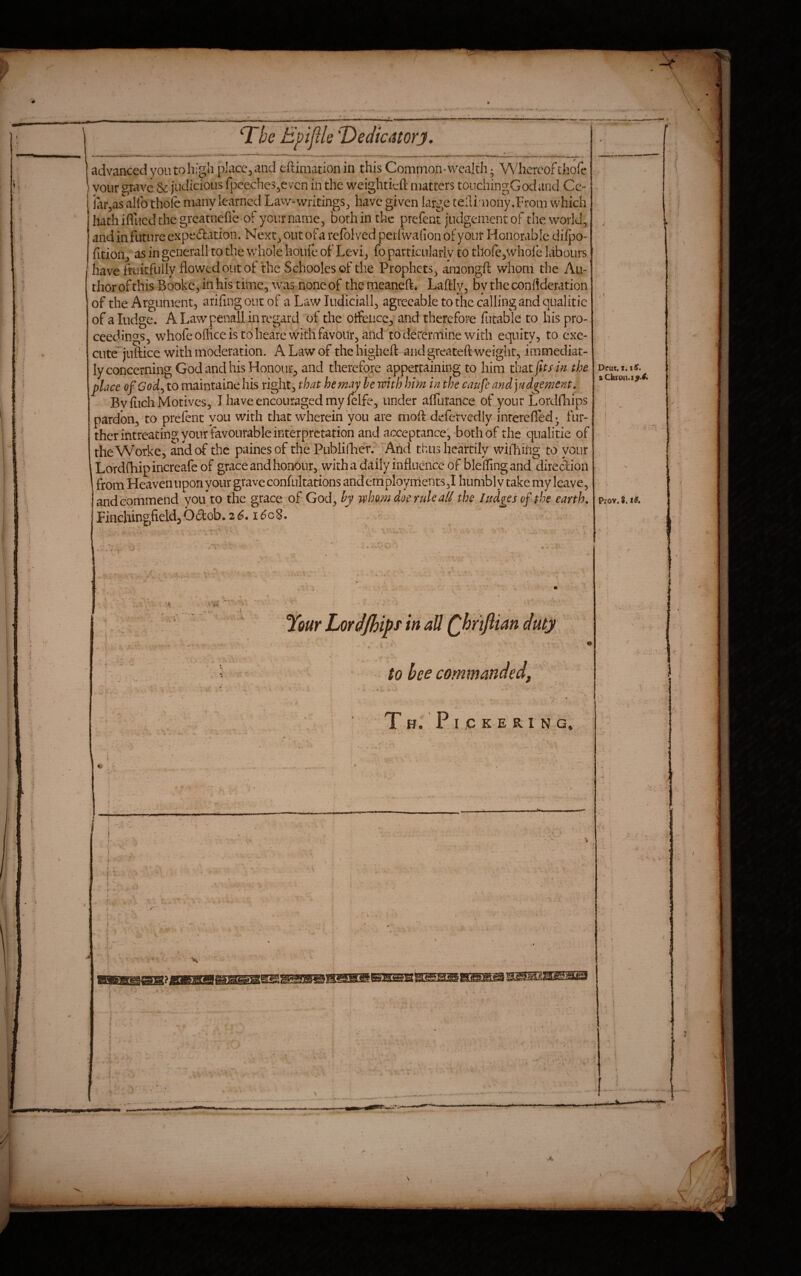 The Epiſtle Dedicatory.
advanced you to high place, and eſtimation in this Common-wealth; Whereof thoſe
your grave & judicious ſpeeches, even in the weightieſt matters touching God and Ce-
ſar, as alſo thoſe many learned Law-writings, have given large teſtimony. From which
hath iſſued the greatneſſe of your name, both in the preſent judgement of the world,
and in future expectation. Next, out of a reſolved perſwaſion of your Honorable diſpo-
ſition, as in generall to the whole houſe of Levi, ſo particularly to thoſe, whoſe labours
have fruitfully flowed out of the Schooles of the Prophets, amongſt whom the Au-
thor of this Booke, in his time, was none of the meaneſt. Laſtly, by the conſideration
of the Argument, ariſing out of a Law Iudiciall, agreeable to the calling and qualitie
of a Iudge. A Law penall in regard of the offence, and therefore ſutable to his pro-
ceedings, whoſe office is to heare with favour, and to determine with equity, to exe-
cute juſtice with moderation. A Law of the higheſt and greateſt weight, immediat-
ly concerning God and his Honour, and therefore appertaining to him that ſits in the
place of God, to maintaine his right, that he may be with him in the cauſe and judgement.
By ſuch Motives, I have encouraged my ſelfe, under aſſurance of your Lordſhips
pardon, to preſent you with that wherein you are moſt deſervedly intereſſed; fur-
ther intreating your favourable interpretation and acceptance, both of the qualitie of
the Worke, and of the paines of the Publiſher. And thus heartily wiſhing to your
Lordſhip increaſe of grace and honour, with a daily influence of bleſſing and direction
from Heaven upon your grave conſultations and employments, I humbly take my leave,
and commend you to the grace of God, by whom doe rule all the Iudges of the earth.
Finchingfield, Octob. 26. 1608.
Deut. 1. 16.
2 Chron. 19.6.
Prov. 8. 16.
Your Lordſhips in all Chriſtian duty
to bee commanded,
TH. PICKERING.